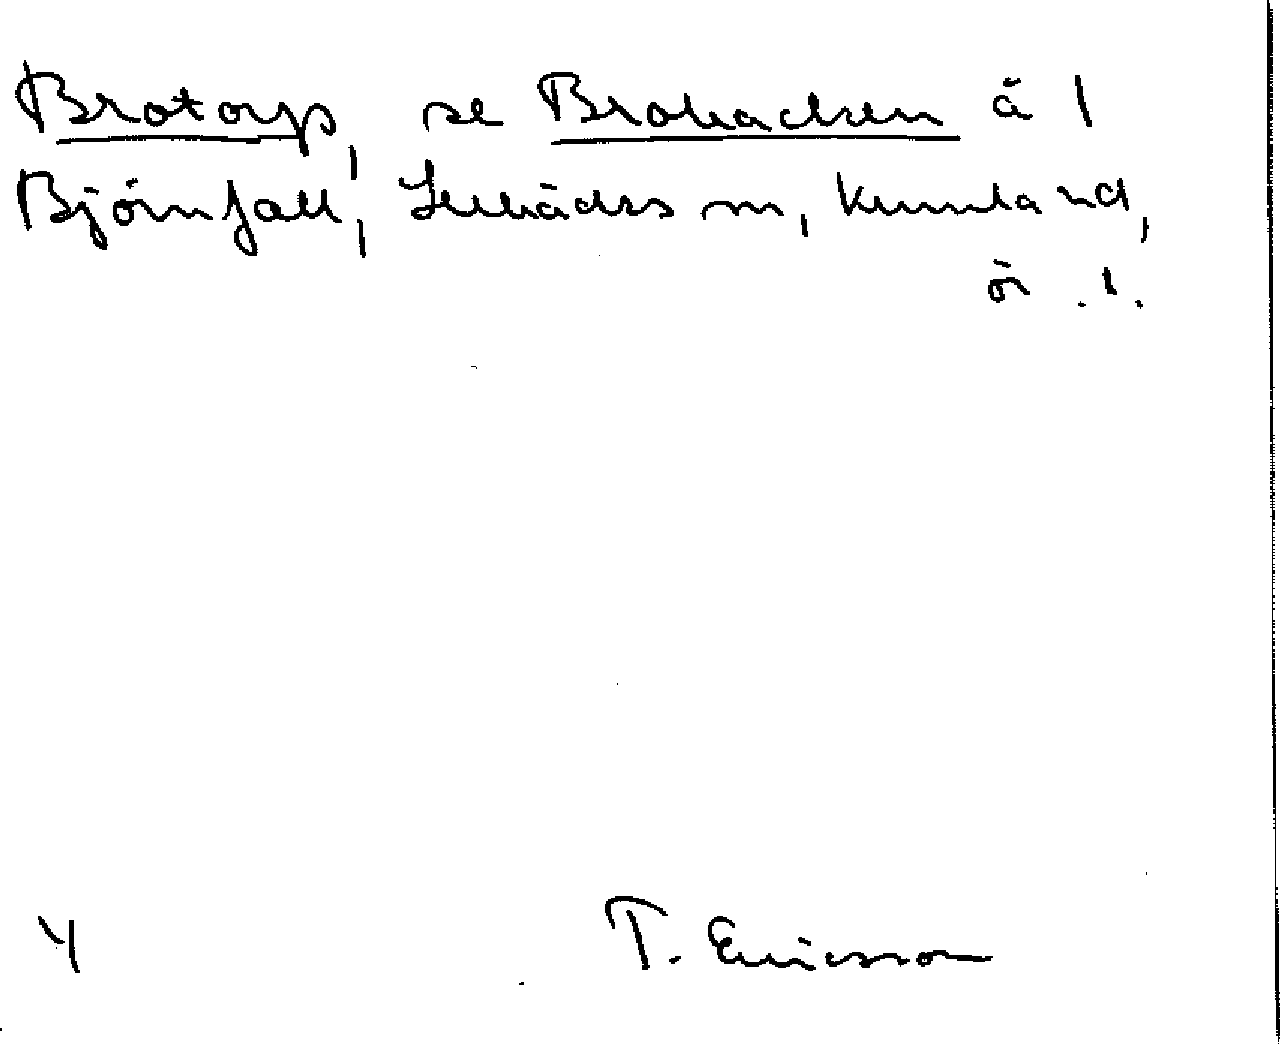 Brotorp, se Brobacken å 1
Björnfall, Lekbäcks sn, Kumla hd,
ör .l.
4
T. Ericsson